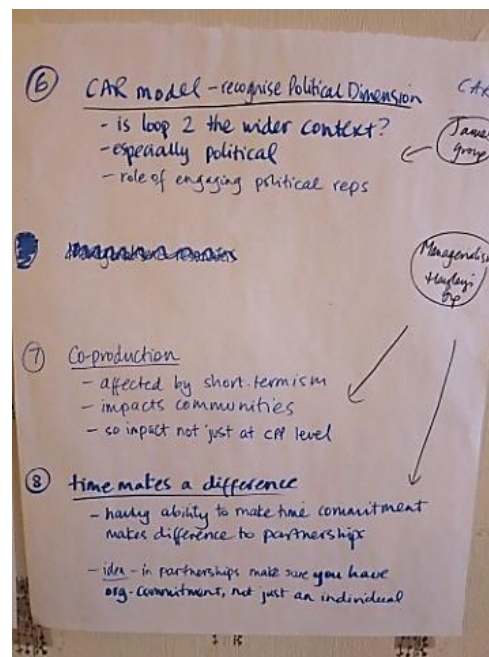 6 CAR model - recognise Political Dimension
- is loop 2 the wider context?
- especially political
- role of engaging political reps
CAR
James
group
Managerialis
Hayley's
gp
7 Co-production
- affected by short-termism
- impacts communities
- so impact not just at CPP level
8 time makes a difference
- having ability to make time commitment
makes difference to partnerships
- idea - in partnerships make sure you have
org-commitment, not just an individual